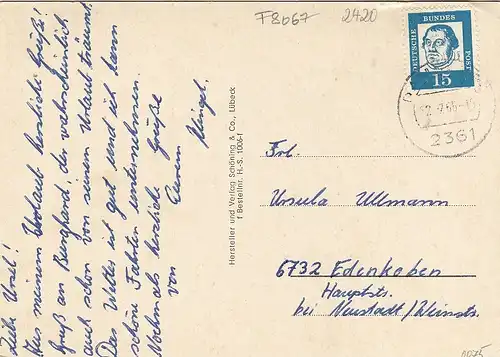 F8667 2420
DEUTSCHE BUNDESPOST
15
2361
Liebe Ursel!
Aus meinem Urlaub herzliche Grüße!
Gruß an Burghard, der wahrscheinlich
auch schon von seinem Urlaub träumt.
Das Wetter ist gut und ich kann
schöne Fahrten unternehmen.
Nochmals herzliche Grüße
von
Hersteller und Verlag Schöning & Co., Lübeck
f Bestellnr. H.-S. 1006-f
Frl.
Ursula Ullmann
6732 Edenkoben
Hauptstr.
bei Neustadt/Weinstr.